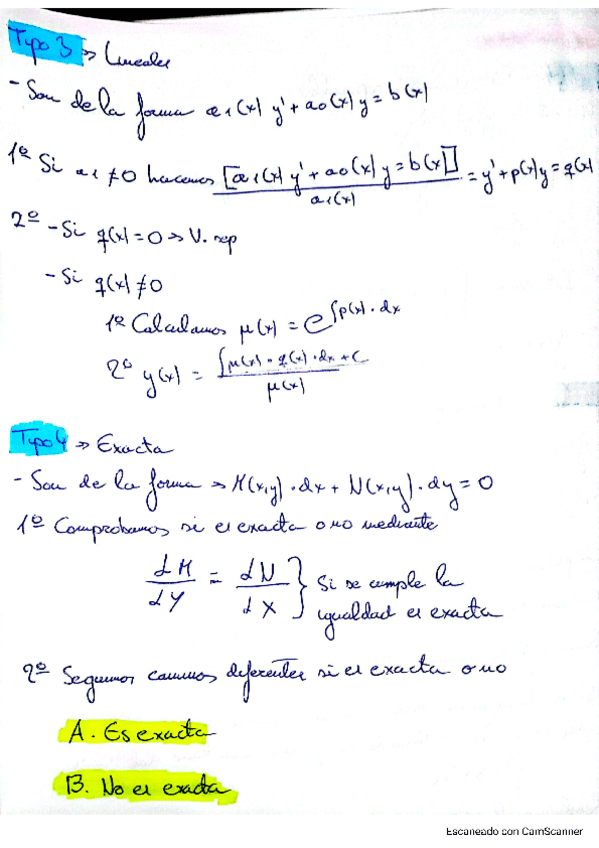 Tipo 3 => Lineales
- Son de la forma a₁(x) y' + a₀(x) y = b(x)
1º Si a₁ ≠ 0 hacemos [a₁(x) y' + a₀(x) y = b(x)] / a₁(x) = y' + p(x)y = q(x)
2º - Si q(x) = 0 => V. sep
- Si q(x) ≠ 0
1º Calculamos μ(x) = e^∫p(x)·dx
2º y(x) = ∫μ(x)·q(x)·dx + C / μ(x)
Tipo 4 => Exacta
- Son de la forma => M(x,y)·dx + N(x,y)·dy = 0
1º Comprobamos si es exacta o no mediante
dM/dY = dN/dX } Si se cumple la
igualdad es exacta
2º Seguimos caminos diferentes si es exacta o no
A. Es exacta
B. No es exacta
Escaneado con CamScanner